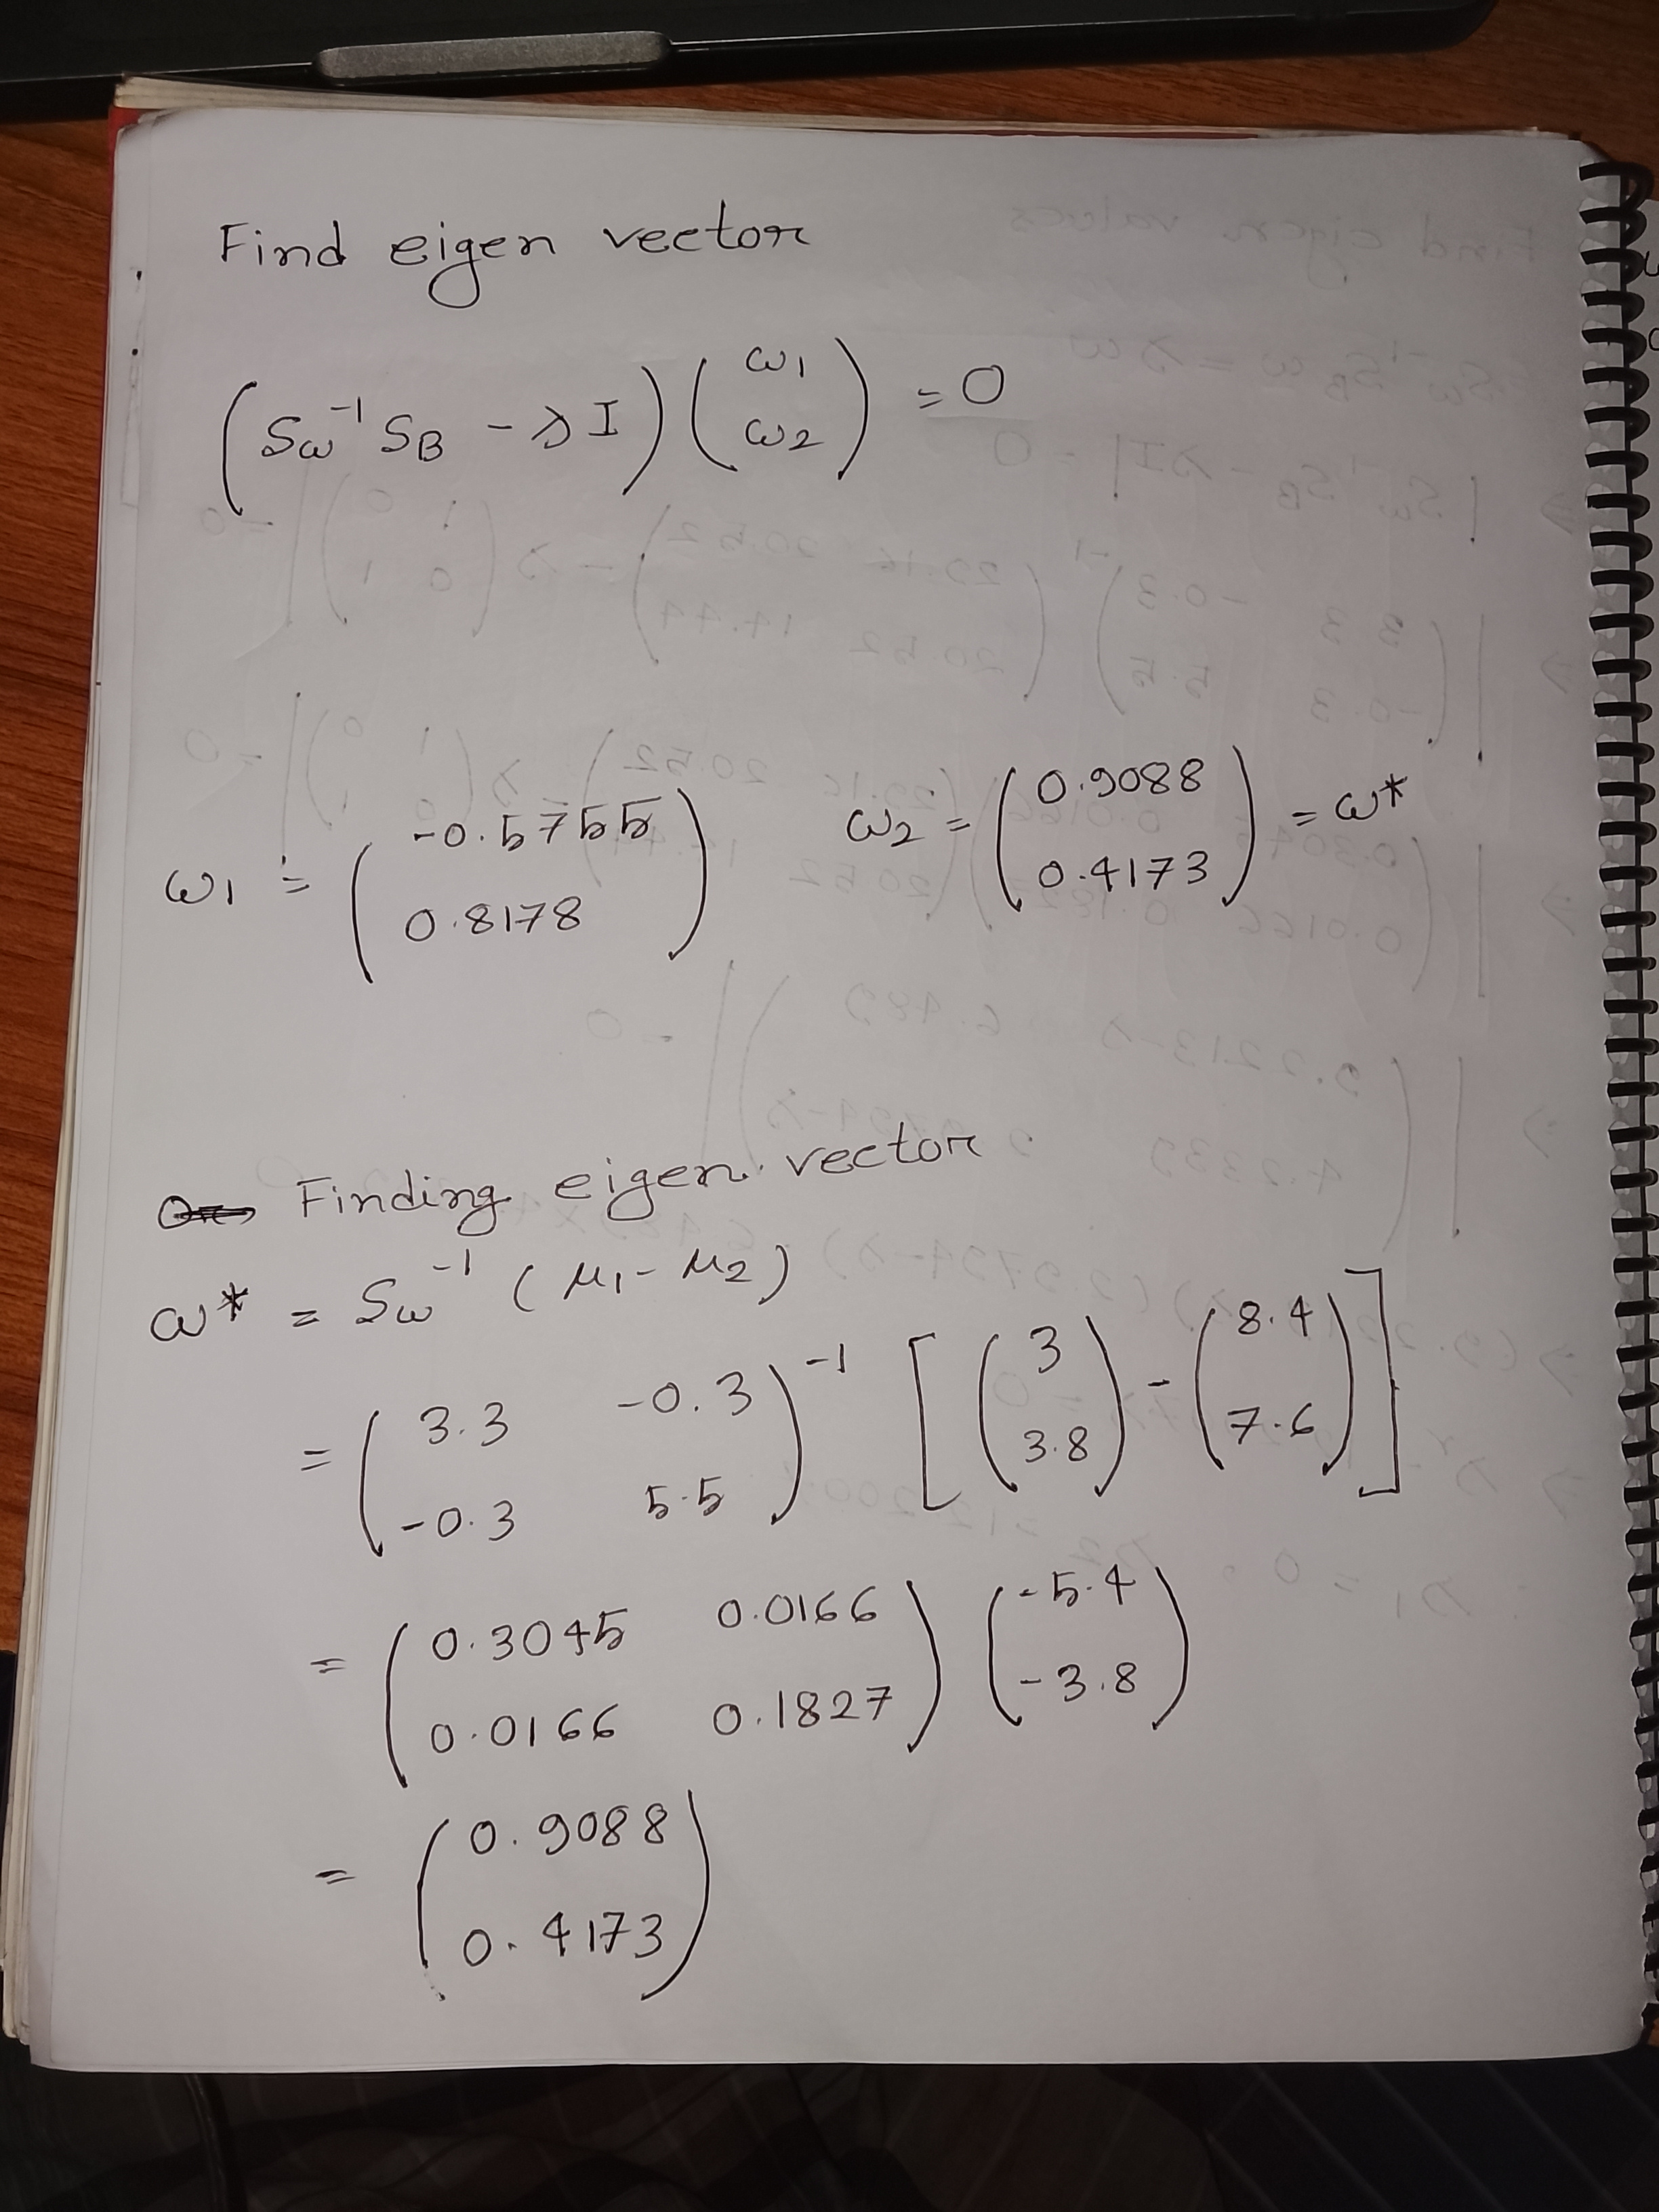 Find eigen vector
(Sω⁻¹ SB - λI) (ω1 ω2) = 0
ω1 = (-0.5755 0.8178) ω2 = (0.9088 0.4173) = ω*
Finding eigen vector
ω* = Sω⁻¹ (μ1 - μ2)
= (3.3 -0.3 -0.3 5.5)⁻¹ [(3 3.8) - (8.4 7.6)]
= (0.3045 0.0166 0.0166 0.1827) (-5.4 -3.8)
= (0.9088 0.4173)